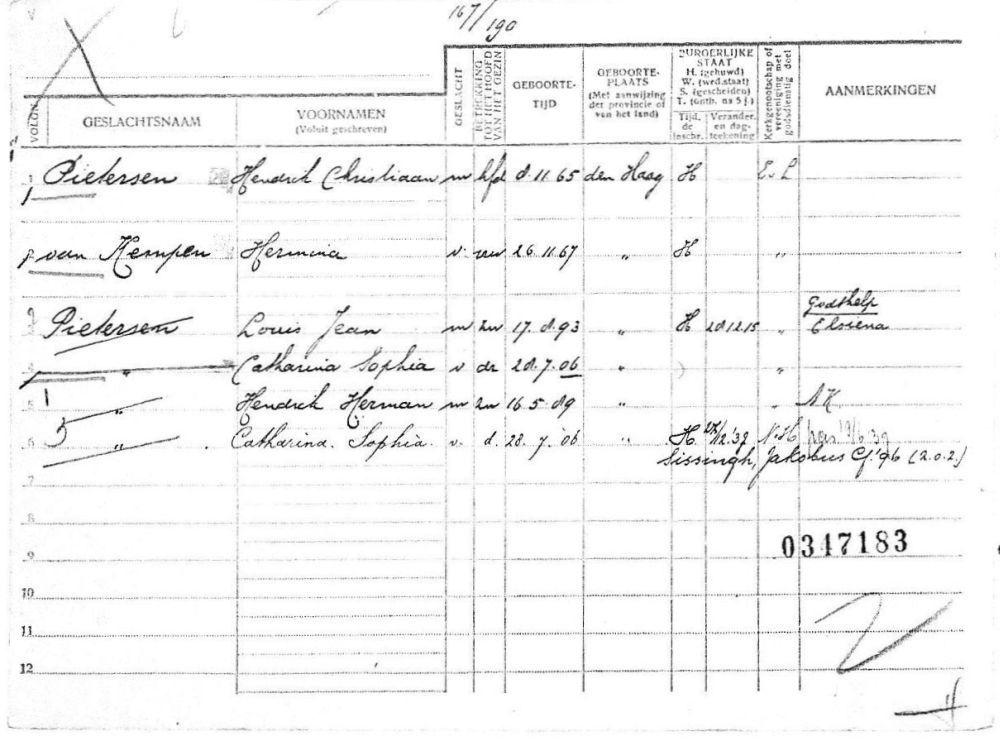 167/190
VOLGN
GESLACHTSNAAM
VOORNAMEN
(Voluit geschreven)
GESLACHT
BETREKKING TOT HET HOOFD VAN HET GEZIN
GEBOORTE-
TIJD
GEBOORTE-
PLAATS
(Met aanwijzing
der provincie of
van het land)
BURGERLIJKE
STAAT
H. (gehuwd)
W. (wed. staat)
S. (gescheiden)
T. (ontb. na 5 j.)
Tijd. de inschr.
Verander. en dag-teekening
Kerkgenootschap of vereeniging met godsdienstig doel
AANMERKINGEN
1 Pietersen Hendrik Christiaan m hfd d.11.65 den Haag H E.L
van Kempen Hermina v. vrw 26.11.67 " H "
Godthelp
Pietersen Louis Jean m zn 17.d.93 " H 2d12.15 " Elsiena
" Catharina Sophia v dr 2d.7.06 " "
5 " Hendrik Herman m zn 16.5.d9 " "
6 " Catharina Sophia. v. d. 28.7.'06 " H. N.H.
Sissingh, Jakobus '96 (2.0.2.)
7
8
9
0347183
10
11
12